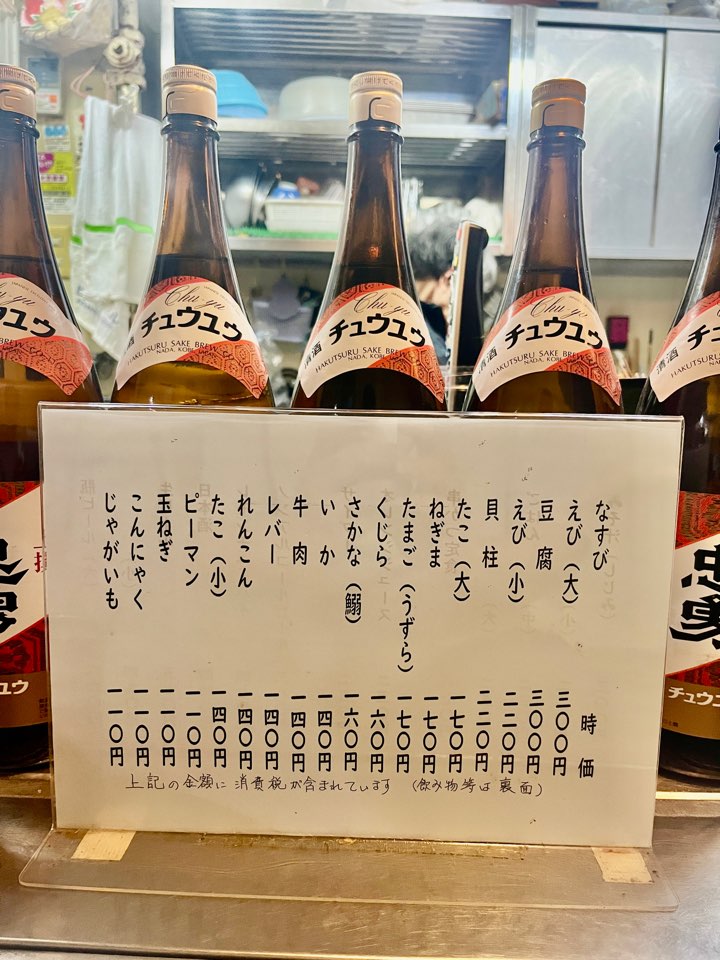 Chu-yu
清酒 チュウユウ
HAKUTSURU SAKE BREW
NADA, KOBE
Chu-yu
清酒 チュウユウ
HAKUTSURU SAKE BREW
NADA, KOBE
Chu-yu
清酒 チュウユウ
HAKUTSURU SAKE BREW
NADA, KOBE
なすび 時価
えび（大） 三〇〇円
豆腐 三〇〇円
えび（小） 二二〇円
貝柱 二二〇円
たこ（大） 一七〇円
ねぎま 一七〇円
たまご（うずら） 一七〇円
くじら 一六〇円
さかな（鰯） 一六〇円
いか 一四〇円
牛肉 一四〇円
レバー 一四〇円
れんこん 一四〇円
たこ（小） 一四〇円
ピーマン 一一〇円
玉ねぎ 一一〇円
こんにゃく 一一〇円
じゃがいも 一一〇円
上記の金額に消費税が含まれています （飲み物等は裏面）
忠勇
チュウユウ